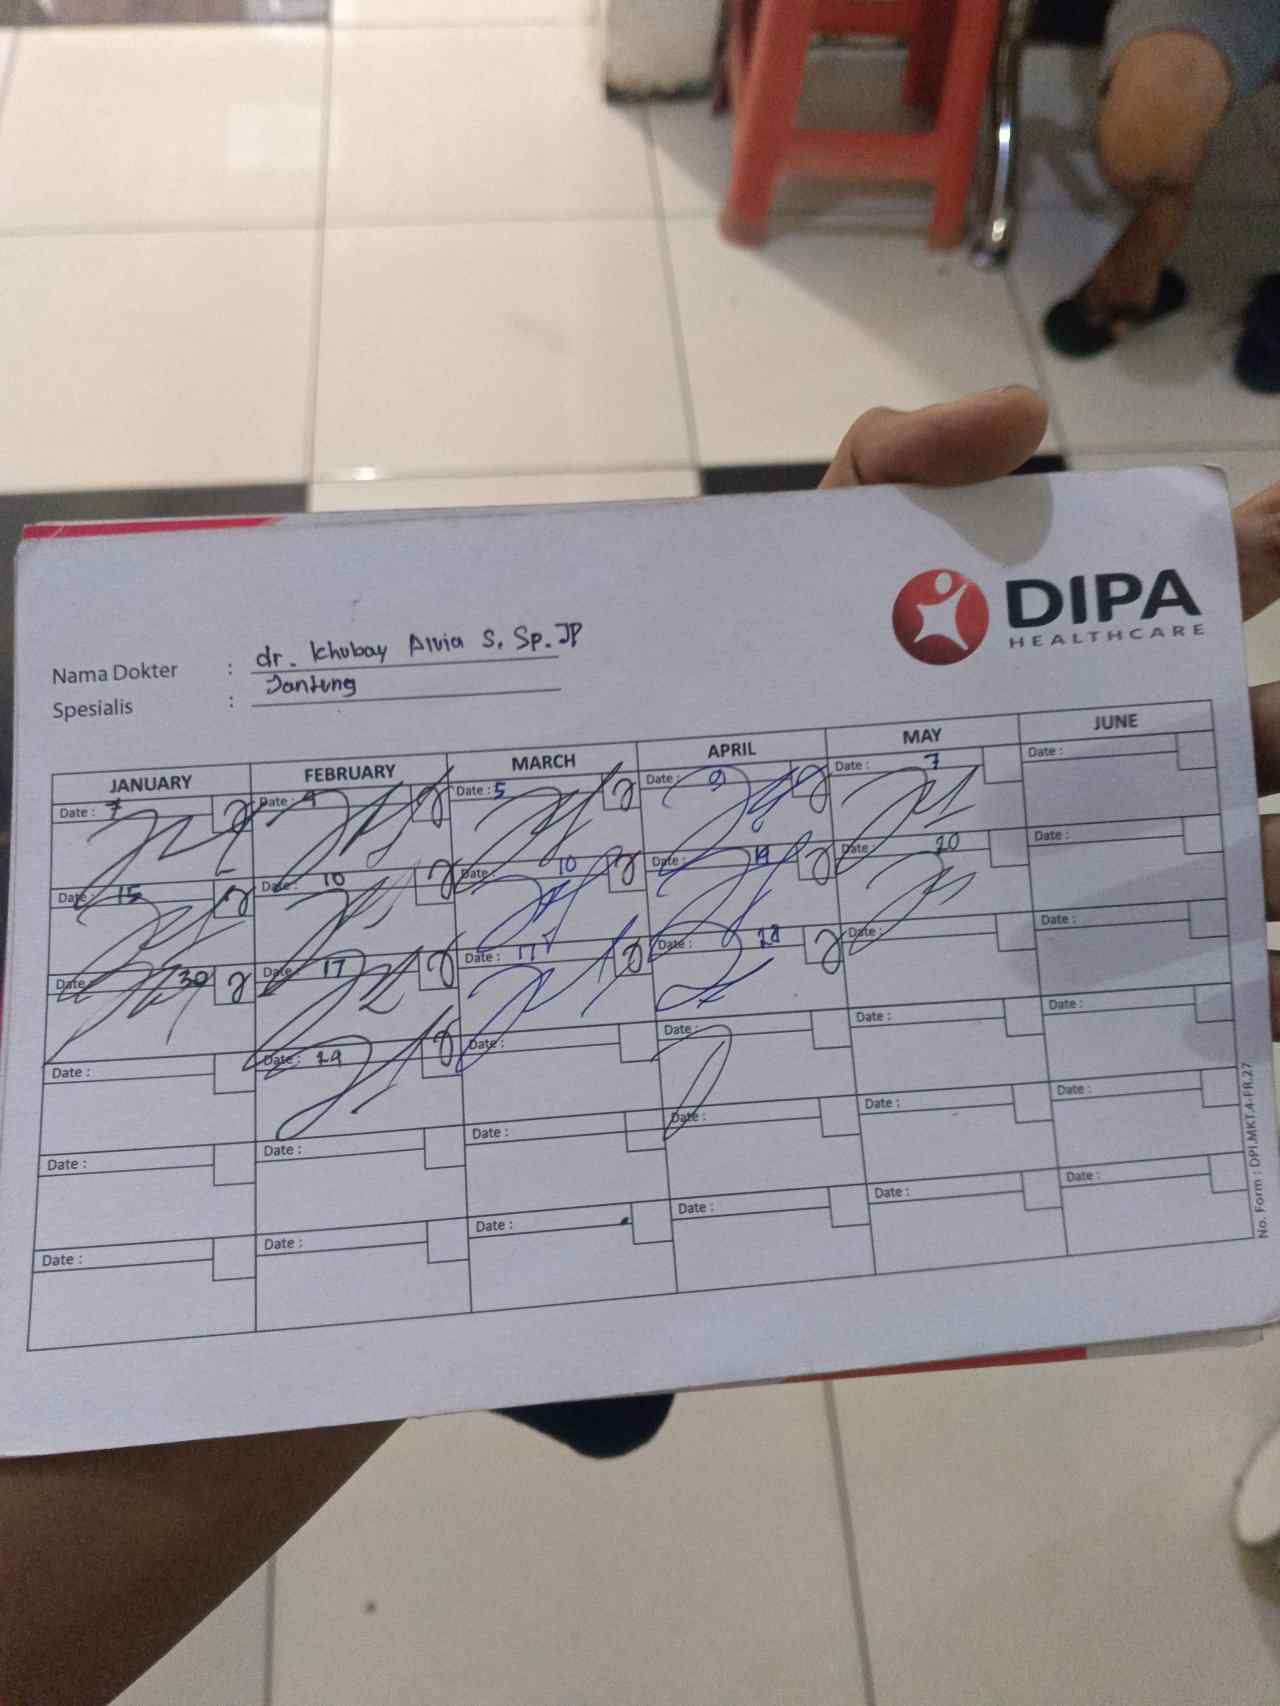 DIPA
HEALTHCARE
Nama Dokter : dr. Khubay Alvia S, Sp.JP
Spesialis : Jantung
JANUARY FEBRUARY MARCH APRIL MAY JUNE
Date : 7 Date : 4 Date : 5 Date : 9 Date : 7 Date :
Date : 15 Date : 10 Date : 10 Date : 14 Date : 20 Date :
Date : 30 Date : 17 Date : 17 Date : 28 Date : Date :
Date : Date : 24 Date : Date : Date : Date :
Date : Date : Date : Date : Date : Date :
Date : Date : Date : Date : Date : Date :
No. Form : DPI.MKT.4-FR.27